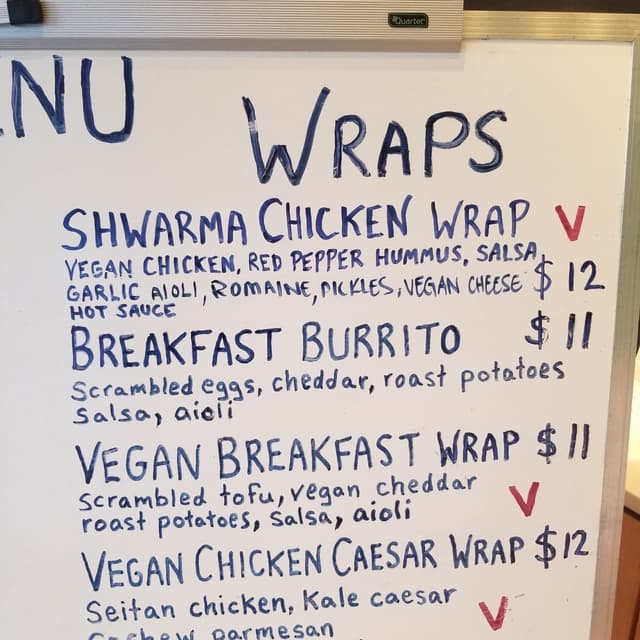 Quartet
NU
WRAPS
SHWARMA CHICKEN WRAP V
VEGAN CHICKEN, RED PEPPER HUMMUS, SALSA,
GARLIC AIOLI, ROMAINE, PICKLES, VEGAN CHEESE $12
HOT SAUCE
BREAKFAST BURRITO $11
Scrambled eggs, cheddar, roast potatoes
Salsa, aioli
VEGAN BREAKFAST WRAP $11
Scrambled tofu, vegan cheddar
roast potatoes, salsa, aioli V
VEGAN CHICKEN CAESAR WRAP $12
Seitan chicken, Kale caesar
Cashew parmesan V